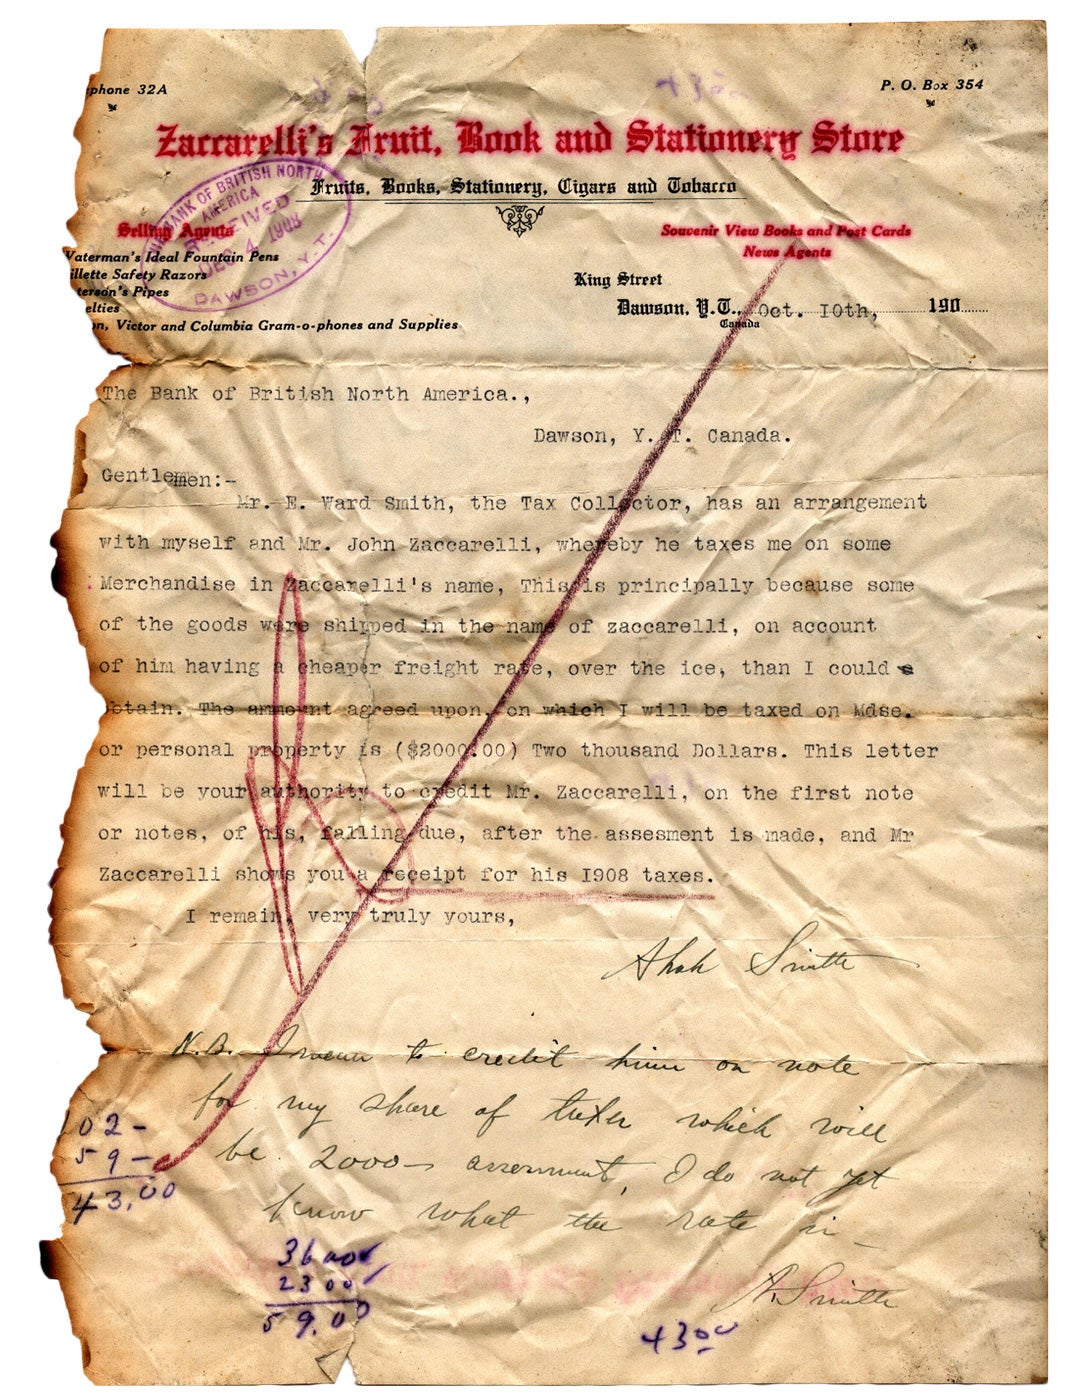 ephone 32A
P. O. Box 354
Zaccarelli's Fruit, Book and Stationery Store
Fruits, Books, Stationery, Cigars and Tobacco
THE BANK OF BRITISH NORTH
AMERICA
RECEIVED
DEC 4 1908
DAWSON, Y.T.
Selling Agents
Waterman's Ideal Fountain Pens
illette Safety Razors
terson's Pipes
elties
on, Victor and Columbia Gram-o-phones and Supplies
Souvenir View Books and Post Cards
News Agents
King Street
Dawson, Y.T., Oct. 10th, 190
Canada
The Bank of British North America.,
Dawson, Y. T. Canada.
Gentlemen:-
Mr. E. Ward Smith, the Tax Collector, has an arrangement
with myself and Mr. John Zaccarelli, whereby he taxes me on some
Merchandise in Zaccarelli's name, This is principally because some
of the goods were shipped in the name of zaccarelli, on account
of him having a cheaper freight rate, over the ice, than I could
obtain. The ammount agreed upon, on which I will be taxed on Mdse.
or personal property is ($2000.00) Two thousand Dollars. This letter
will be your authority to credit Mr. Zaccarelli, on the first note
or notes, of his, falling due, after the assesment is made, and Mr
Zaccarelli shows you a receipt for his 1908 taxes.
I remain, very truly yours,
Smith
N.B. I mean to credit him on note
for my share of taxes which will
be 2000- assessment, I do not yet
know what the rate is -
A. Smith
02-
59-
43,00
36 00
23 00
59.00
43 00